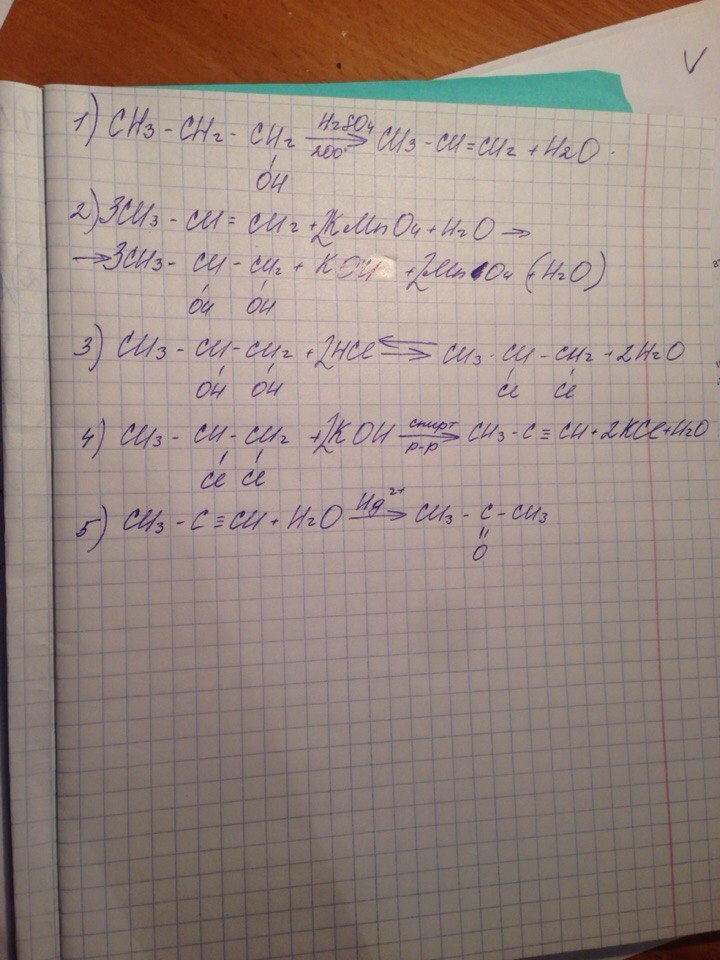 1) CH3 - CH2 - CH2 H2SO4 200° → CH3 - CH = CH2 + H2O
OH
2) 3CH3 - CH = CH2 + 2KMnO4 + H2O →
→ 3CH3 - CH - CH2 + KOH + 2MnO4 (+H2O)
OH OH
3) CH3 - CH - CH2 + 2HCl ⇄ CH3 - CH - CH2 + 2H2O
OH OH Cl Cl
4) CH3 - CH - CH2 + 2KOH спирт р-р → CH3 - C ≡ CH + 2KCl + H2O
Cl Cl
5) CH3 - C ≡ CH + H2O Hg2+ → CH3 - C - CH3
O
V